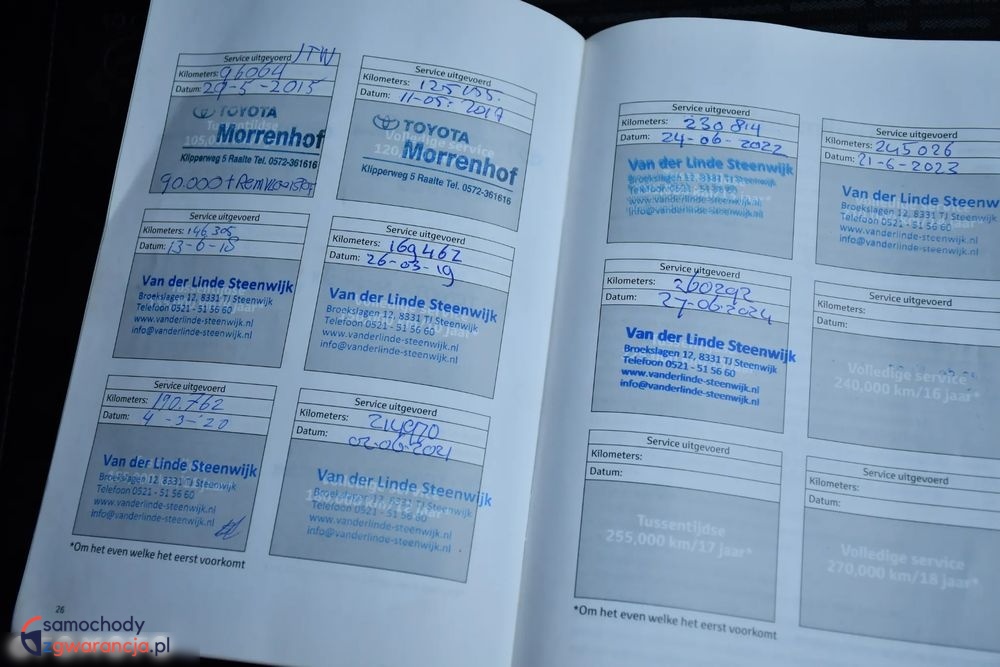 JTW
Service uitgevoerd
Kilometers: 96064
Datum: 29-5-2015
TOYOTA
Morrenhof
Klipperweg 5 Raalte Tel. 0572-361616
90.000 +
Service uitgevoerd
Kilometers:
Datum: 11-05-
TOYOTA
Volledige service
Morrenhof
Klipperweg 5 Raalte Tel. 0572-361616
Service uitgevoerd
Kilometers: 146.305
Datum: 13-6-18
Van der Linde Steenwijk
Broekslagen 12, 8331 TJ Steenwijk
Telefoon 0521 - 51 56 60
www.vanderlinde-steenwijk.nl
info@vanderlinde-steenwijk.nl
Service uitgevoerd
Kilometers: 169462
Datum: 26-03-19
Van der Linde Steenwijk
Broekslagen 12, 8331 TJ Steenwijk
Telefoon 0521 - 51 56 60
www.vanderlinde-steenwijk.nl
info@vanderlinde-steenwijk.nl
Service uitgevoerd
Kilometers: 190.762
Datum: 4-3-'20
Van der Linde Steenwijk
Broekslagen 12, 8331 TJ Steenwijk
Telefoon 0521 - 51 56 60
www.vanderlinde-steenwijk.nl
info@vanderlinde-steenwijk.nl
Service uitgevoerd
Kilometers:
Datum: 02-06-2021
Van der Linde Steenwijk
Broekslagen 12, 8331 TJ Steenwijk
Telefoon 0521 - 51 56 60
www.vanderlinde-steenwijk.nl
info@vanderlinde-steenwijk.nl
*Om het even welke het eerst voorkomt
26
Service uitgevoerd
Kilometers: 230814
Datum: 24-06-2022
Van der Linde Steenwijk
Broekslagen 12, 8331 TJ Steenwijk
Telefoon 0521 - 51 56 60
www.vanderlinde-steenwijk.nl
info@vanderlinde-steenwijk.nl
Service uitgevoerd
Kilometers: 245026
Datum: 21-6-2023
Van der Linde Steenw
Broekslagen 12, 8331 TJ Steenwijk
Telefoon 0521 - 51 56 60
www.vanderlinde-steenwijk.nl
info@vanderlinde-steenwijk.nl
Service uitgevoerd
Kilometers: 260292
Datum: 27-06-2024
Van der Linde Steenwijk
Broekslagen 12, 8331 TJ Steenwijk
Telefoon 0521 - 51 56 60
www.vanderlinde-steenwijk.nl
info@vanderlinde-steenwijk.nl
Service uitgevoerd
Kilometers:
Datum:
Volledige service
240,000 km/16 jaar*
Service uitgevoerd
Kilometers:
Datum:
Tussentijdse
255,000 km/17 jaar*
Service uitgevoerd
Kilometers:
Datum:
Volledige service
270,000 km/18 jaar*
*Om het even welke het eerst voorkomt
samochody
zgwarancja.pl